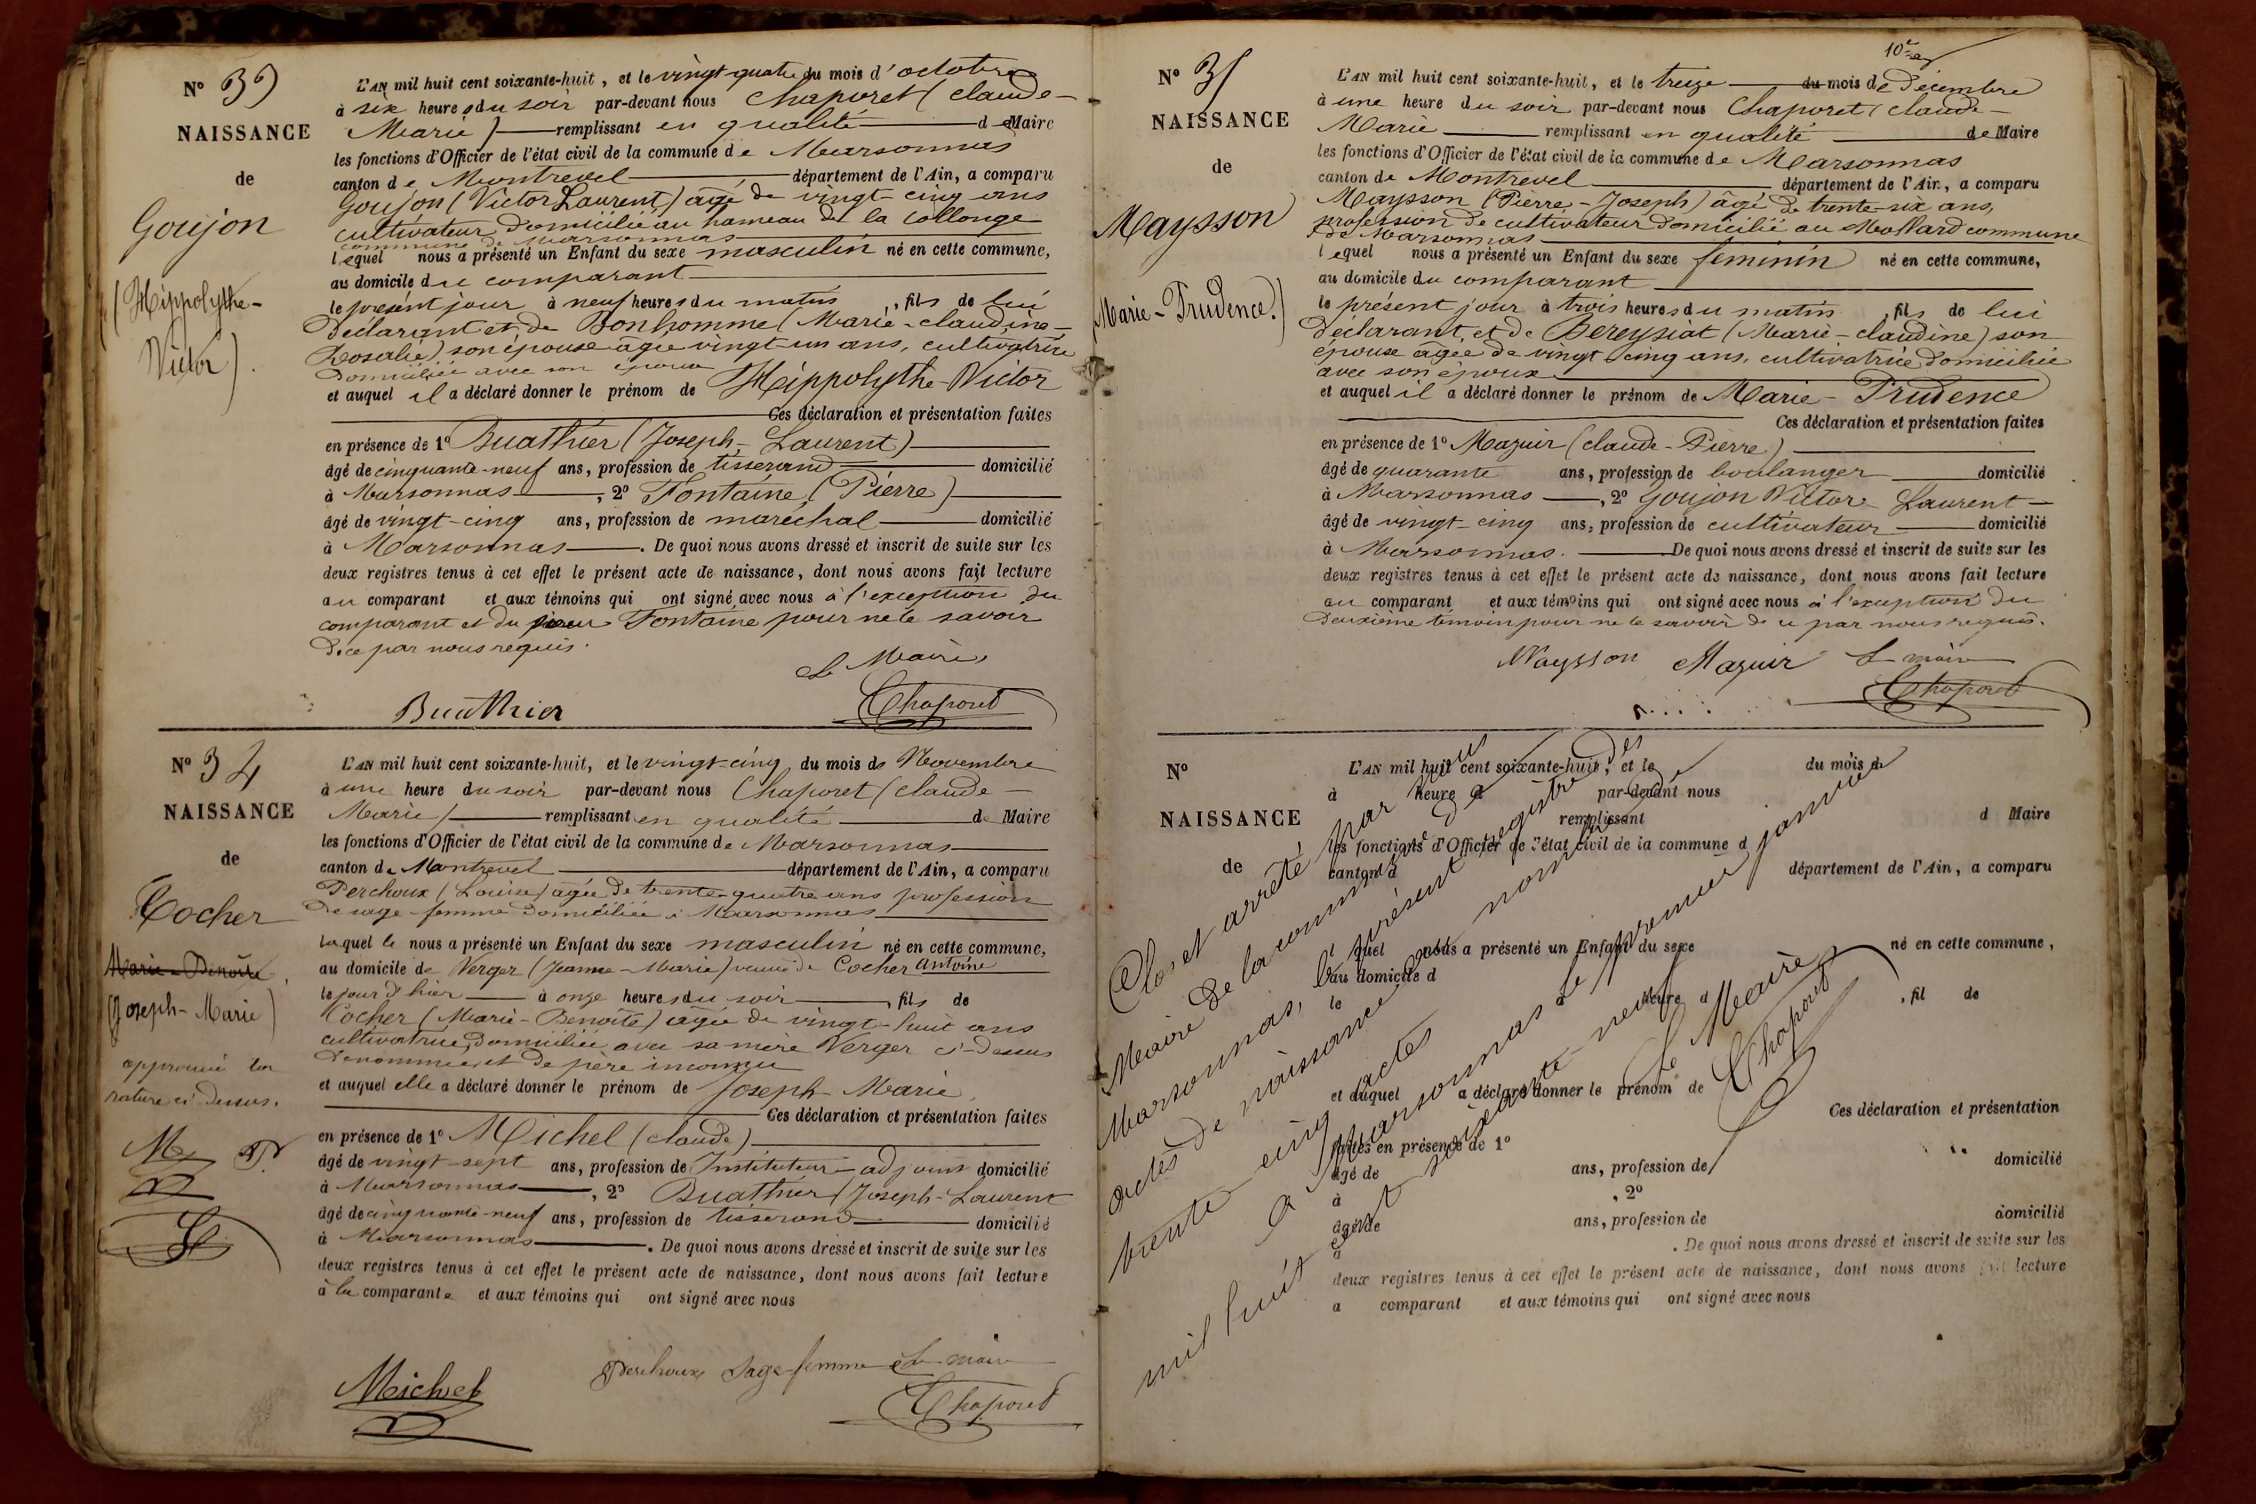 N° 33
NAISSANCE
de
Goujon
(Hippolythe-
Victor)
L'AN mil huit cent soixante-huit, et le vingt quatre du mois d'octobre
à six heures du soir par-devant nous Chaporet (Claude-
Marie) remplissant en qualité de Maire
les fonctions d'Officier de l'état civil de la commune de Marsonnas
canton de Montrevel département de l'Ain, a comparu
Goujon (Victor Laurent) âgé de vingt-cinq ans
cultivateur domicilié au hameau de la Collonge
commune de Marsonnas
lequel nous a présenté un Enfant du sexe masculin né en cette commune,
au domicile du comparant
le présent jour à neuf heures du matin, fils de lui
Déclarant et de Bonhomme (Marie-claudine-
Rosalie) son épouse âgée vingt un ans, cultivatrice
domiciliée avec son époux
et auquel il a déclaré donner le prénom de Hippolythe Victor
Ces déclaration et présentation faites
en présence de 1° Buathier (Joseph-Laurent)
âgé de cinquante-neuf ans, profession de tisserand domicilié
à Marsonnas, 2° Fontaine (Pierre)
âgé de vingt-cinq ans, profession de maréchal domicilié
à Marsonnas. De quoi nous avons dressé et inscrit de suite sur les
deux registres tenus à cet effet le présent acte de naissance, dont nous avons fait lecture
au comparant et aux témoins qui ont signé avec nous à l'exception du
comparant et du sieur Fontaine pour ne le savoir
de ce par nous requis.
Le Maire
Buathier Chaporet
N° 34
NAISSANCE
de
Cocher
Marie-Benoite
(Joseph-Marie)
approuvé la
rature ci-dessus.
L'AN mil huit cent soixante-huit, et le vingt-cinq du mois de Novembre
à une heure du soir par-devant nous Chaporet (Claude-
Marie) remplissant en qualité de Maire
les fonctions d'Officier de l'état civil de la commune de Marsonnas
canton de Montrevel département de l'Ain, a comparu
Perchoux (Louise) âgée de trente-quatre ans profession
de sage-femme domiciliée à Marsonnas
laquelle nous a présenté un Enfant du sexe masculin né en cette commune,
au domicile de Verger (Jeanne-Marie) veuve de Cocher Antoine
le jour d'hier à onze heures du soir, fils de
Cocher (Marie-Benoite) âgée de vingt-huit ans
cultivatrice domiciliée avec sa mère Verger ci-dessus
dénommée et de père inconnu
et auquel elle a déclaré donner le prénom de Joseph Marie
Ces déclaration et présentation faites
en présence de 1° Michel (claude)
âgé de vingt-sept ans, profession de Instituteur adjoint domicilié
à Marsonnas, 2° Buathier (Joseph-Laurent
âgé de cinquante-neuf ans, profession de tisserand domicilié
à Marsonnas. De quoi nous avons dressé et inscrit de suite sur les
deux registres tenus à cet effet le présent acte de naissance, dont nous avons fait lecture
à la comparante et aux témoins qui ont signé avec nous
Perchoux Sage-femme Le maire
Michel Chaporet
10e
N° 35
NAISSANCE
de
Maysson
(Marie-Prudence.)
L'AN mil huit cent soixante-huit, et le treize du mois de Décembre
à une heure du soir par-devant nous Chaporet (claude-
Marie remplissant en qualité de Maire
les fonctions d'Officier de l'état civil de la commune de Marsonnas
canton de Montrevel département de l'Ain, a comparu
Maysson (Pierre-Joseph) âgé de trente-six ans,
profession de cultivateur domicilié au Mollard commune
de Marsonnas
lequel nous a présenté un Enfant du sexe féminin né en cette commune,
au domicile du comparant
le présent jour à trois heures du matin, fils de lui
Déclarant, et de Bereysiat (Marie-claudine) son
épouse âgée de vingt cinq ans, cultivatrice domiciliée
avec son époux
et auquel il a déclaré donner le prénom de Marie-Prudence
Ces déclaration et présentation faites
en présence de 1° Mazuir (claude-Pierre)
âgé de quarante ans, profession de boulanger domicilié
à Marsonnas, 2° Goujon Victor-Laurent
âgé de vingt-cinq ans, profession de cultivateur domicilié
à Marsonnas. De quoi nous avons dressé et inscrit de suite sur les
deux registres tenus à cet effet le présent acte de naissance, dont nous avons fait lecture
au comparant et aux témoins qui ont signé avec nous à l'exception du
deuxième témoin pour ne le savoir de ce par nous requis.
Maysson Mazuir Le maire
Chaporet
N°
NAISSANCE
de
L'AN mil huit cent soixante-huit, et le du mois d
à heure d par-devant nous
remplissant d Maire
les fonctions d'Officier de l'état civil de la commune d
canton d département de l'Ain, a comparu
l quel nous a présenté un Enfant du sexe né en cette commune,
au domicile d
le heure d, fil de
et auquel a déclaré donner le prénom de
Ces déclaration et présentation
faites en présence de 1°
âgé de ans, profession de domicilié
à, 2°
âgé de ans, profession de domicilié
à. De quoi nous avons dressé et inscrit de suite sur les
deux registres tenus à cet effet le présent acte de naissance, dont nous avons fait lecture
a comparant et aux témoins qui ont signé avec nous
Clos et arrêté par nous
Maire de la commune de
Marsonnas, le présent registre des
actes de naissance au nombre de
trente-cinq actes
à Marsonnas le premier janvier
mil huit cent soixante-neuf
Le Maire
Chaporet